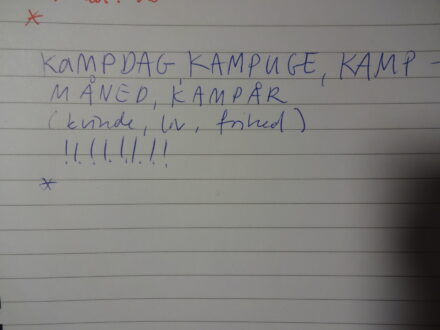 *
KAMPDAG, KAMPUGE, KAMP-
MÅNED, KAMPÅR
(kvinde, liv, frihed)
!!!!!!!!
*